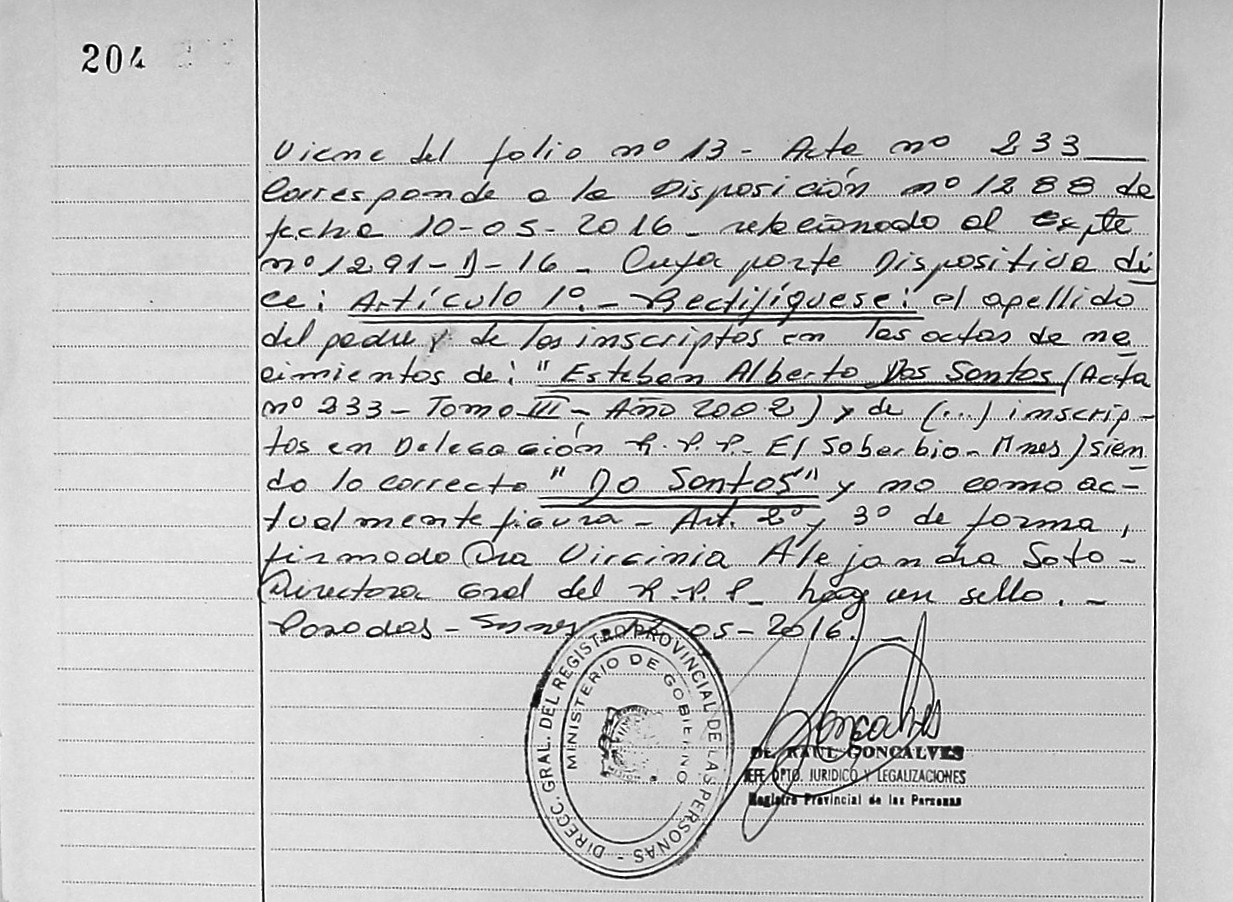 204
Viene del folio nº 13 - Acta nº 233
Corresponde a la Disposición nº 1288 de
fecha 10-05-2016 - relacionado al Expte
nº 1291-D-16 - Cuya parte Dispositiva di
ce: Artículo 1º.- Rectifíquese: el apellido
del padre y de los inscriptos en las actas de na
cimientos de: "Esteban Alberto Dos Santos (Acta
nº 233 - Tomo III - Año 2002) y de (...) inscrip-
tos en Delegación R.P.P. El Soberbio - Mnes) sien
do lo correcto "Do Santos" y no como ac-
tualmente figura - Art. 2º y 3º de forma,
firmado Dra Virginia Alejandra Soto -
Directora Gral del R.P.P - hay un sello. -
Posadas - 05-2016. -
DIRECC. GRAL. DEL REGISTRO PROVINCIAL DE LAS PERSONAS -
MINISTERIO DE GOBIERNO
Goncalves
Dr. RAUL GONCALVES
JEFE DPTO. JURIDICO Y LEGALIZACIONES
Registro Provincial de las Personas